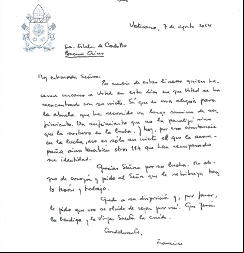 Vaticano, 7 de agosto 2014
Sra. Estela de Carlotto
Buenos Aires
Muy estimada Señora:
Por medio de estas líneas quiero ha-
cerme cercano a Usted en este día en que Usted se ha
reencontrado con su nieto. Sé que es una alegría para
la abuela que ha recorrido un largo camino de su-
frimiento. Un sufrimiento que no la paralizó sino
que la sostuvo en la lucha. Y hoy, por esa constancia
en la lucha, no es sólo un nieto el que la acom-
paña sino también otros 114 que han recuperado
su identidad.
Gracias Señora por su lucha.
de corazón y pido al Señor que le retribuya
tesón y trabajo.
Quedo a su disposición y, por favor,
le pido que no se olvide de rezar por mí. Que Jesús
la bendiga y la Virgen Santa la cuide.
Cordialmente,
Francisco